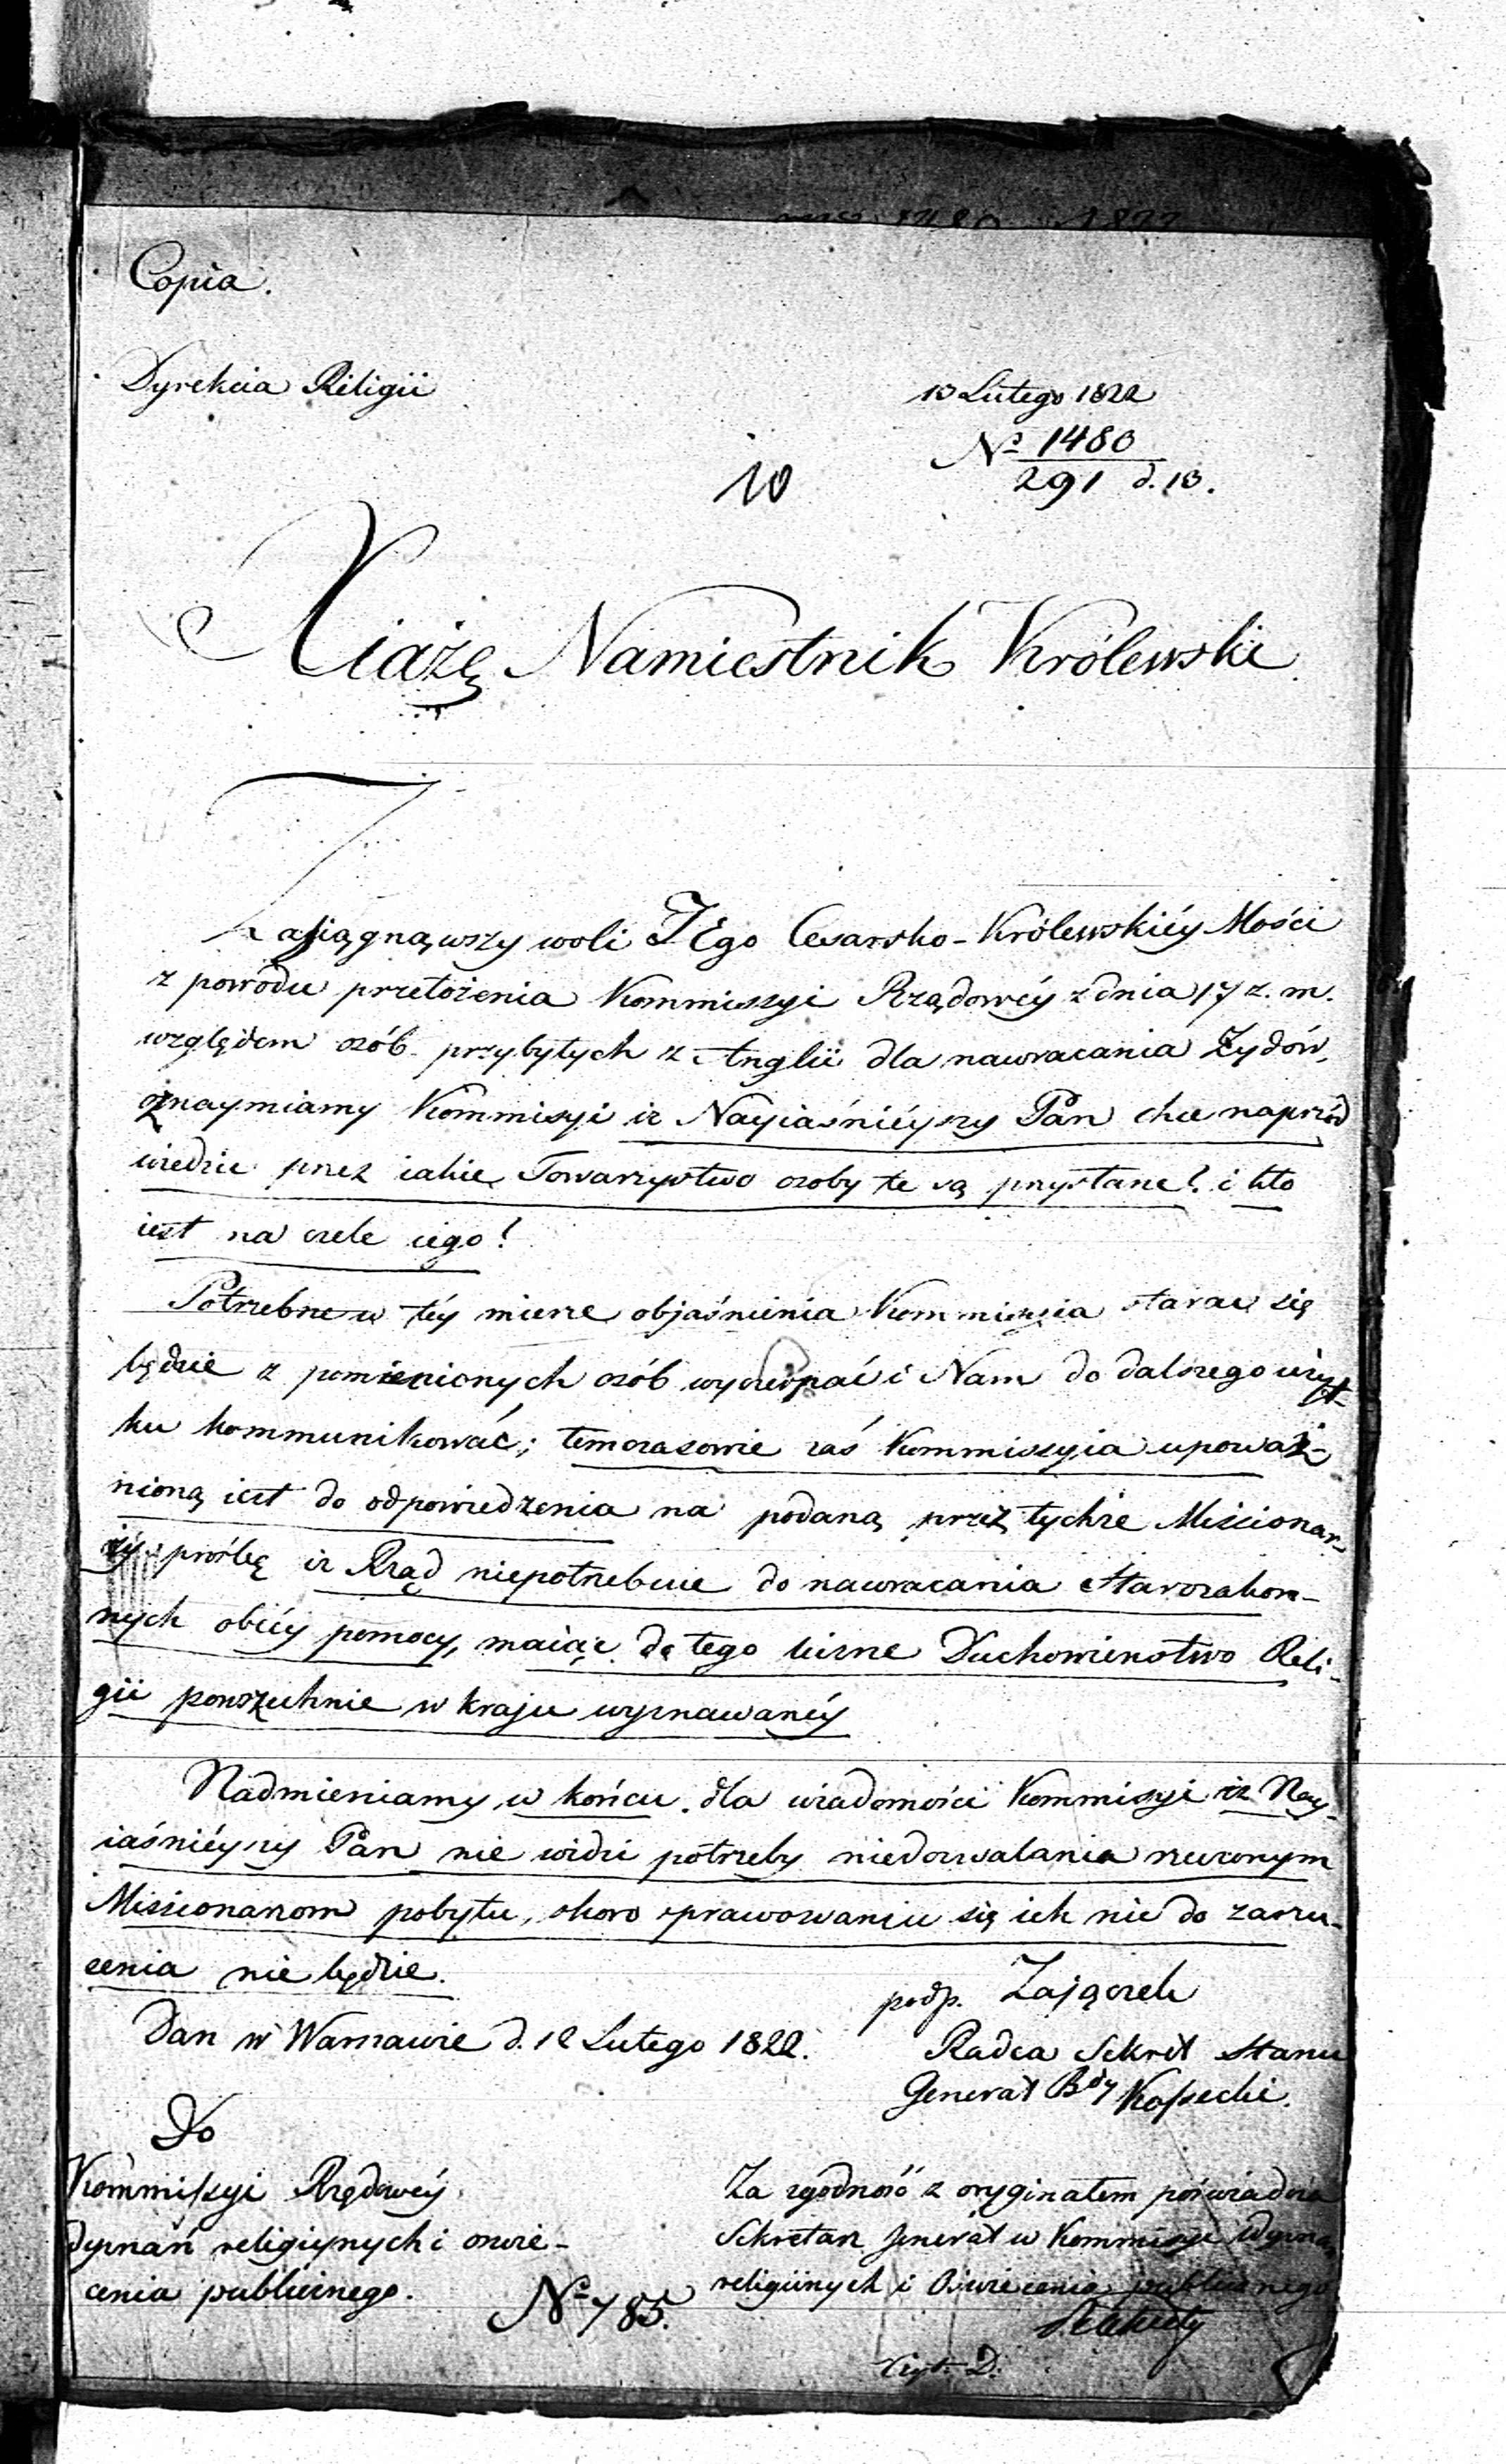 Copia.
Dyrekcia Religii
13 Lutego 1822
№ 1480
291 d. 13.
10
Xiążę Namiestnik Królewski
Zasiągnąwszy woli JEgo Cesarsko-Królewskiéy Mości
z powodu przełożenia Kommissyi Rządowéy z dnia 17 z. m.
względem osób przybyłych z Anglii dla nawracania Żydów,
oznaymiamy Kommissyi iż Nayiaśniéyszy Pan chce naprzód
wiedzieć przez iakie Towarzystwo osoby te są przysłane? i kto
iest na czele iego?
Potrzebne w téy mierze objaśnienia Kommissyia starać się
będzie z pomienionych osób wyczerpać i Nam do dalszego użyt-
ku kommunikować; temczasowie zaś Kommissyia upoważ-
nioną iest do odpowiedzenia na podaną przez tychże Missionar-
zy prośbę iż Rząd niepotrzebuie do nawracania Starozakon-
nych obcéy pomocy, maiąc do tego liczne Duchowienstwo Reli-
gii powszechnie w kraju wyznawanéy
Nadmieniamy w końcu dla wiadomości Kommissyi iż Nay-
iaśniéyszy Pan nie widzi potrzeby niedozwalania rzeczonym
Missionarzom pobytu, skoro sprawowaniu się ich nic do zarzu-
cenia nie będzie.
podp. Zajączek
Dan w Warszawie d. 12 Lutego 1822.
Radca Sekret Stanu
Generał Bdy Kossecki.
Do
Kommissyi Rządowéy
Wyznań religiynych i oświe-
cenia publicznego.
№ 785.
Za zgodność z oryginałem poświadcza
Sekretarz Jenerał w Kommissyi Wyznań
religiinych i Oświecenia publicznego